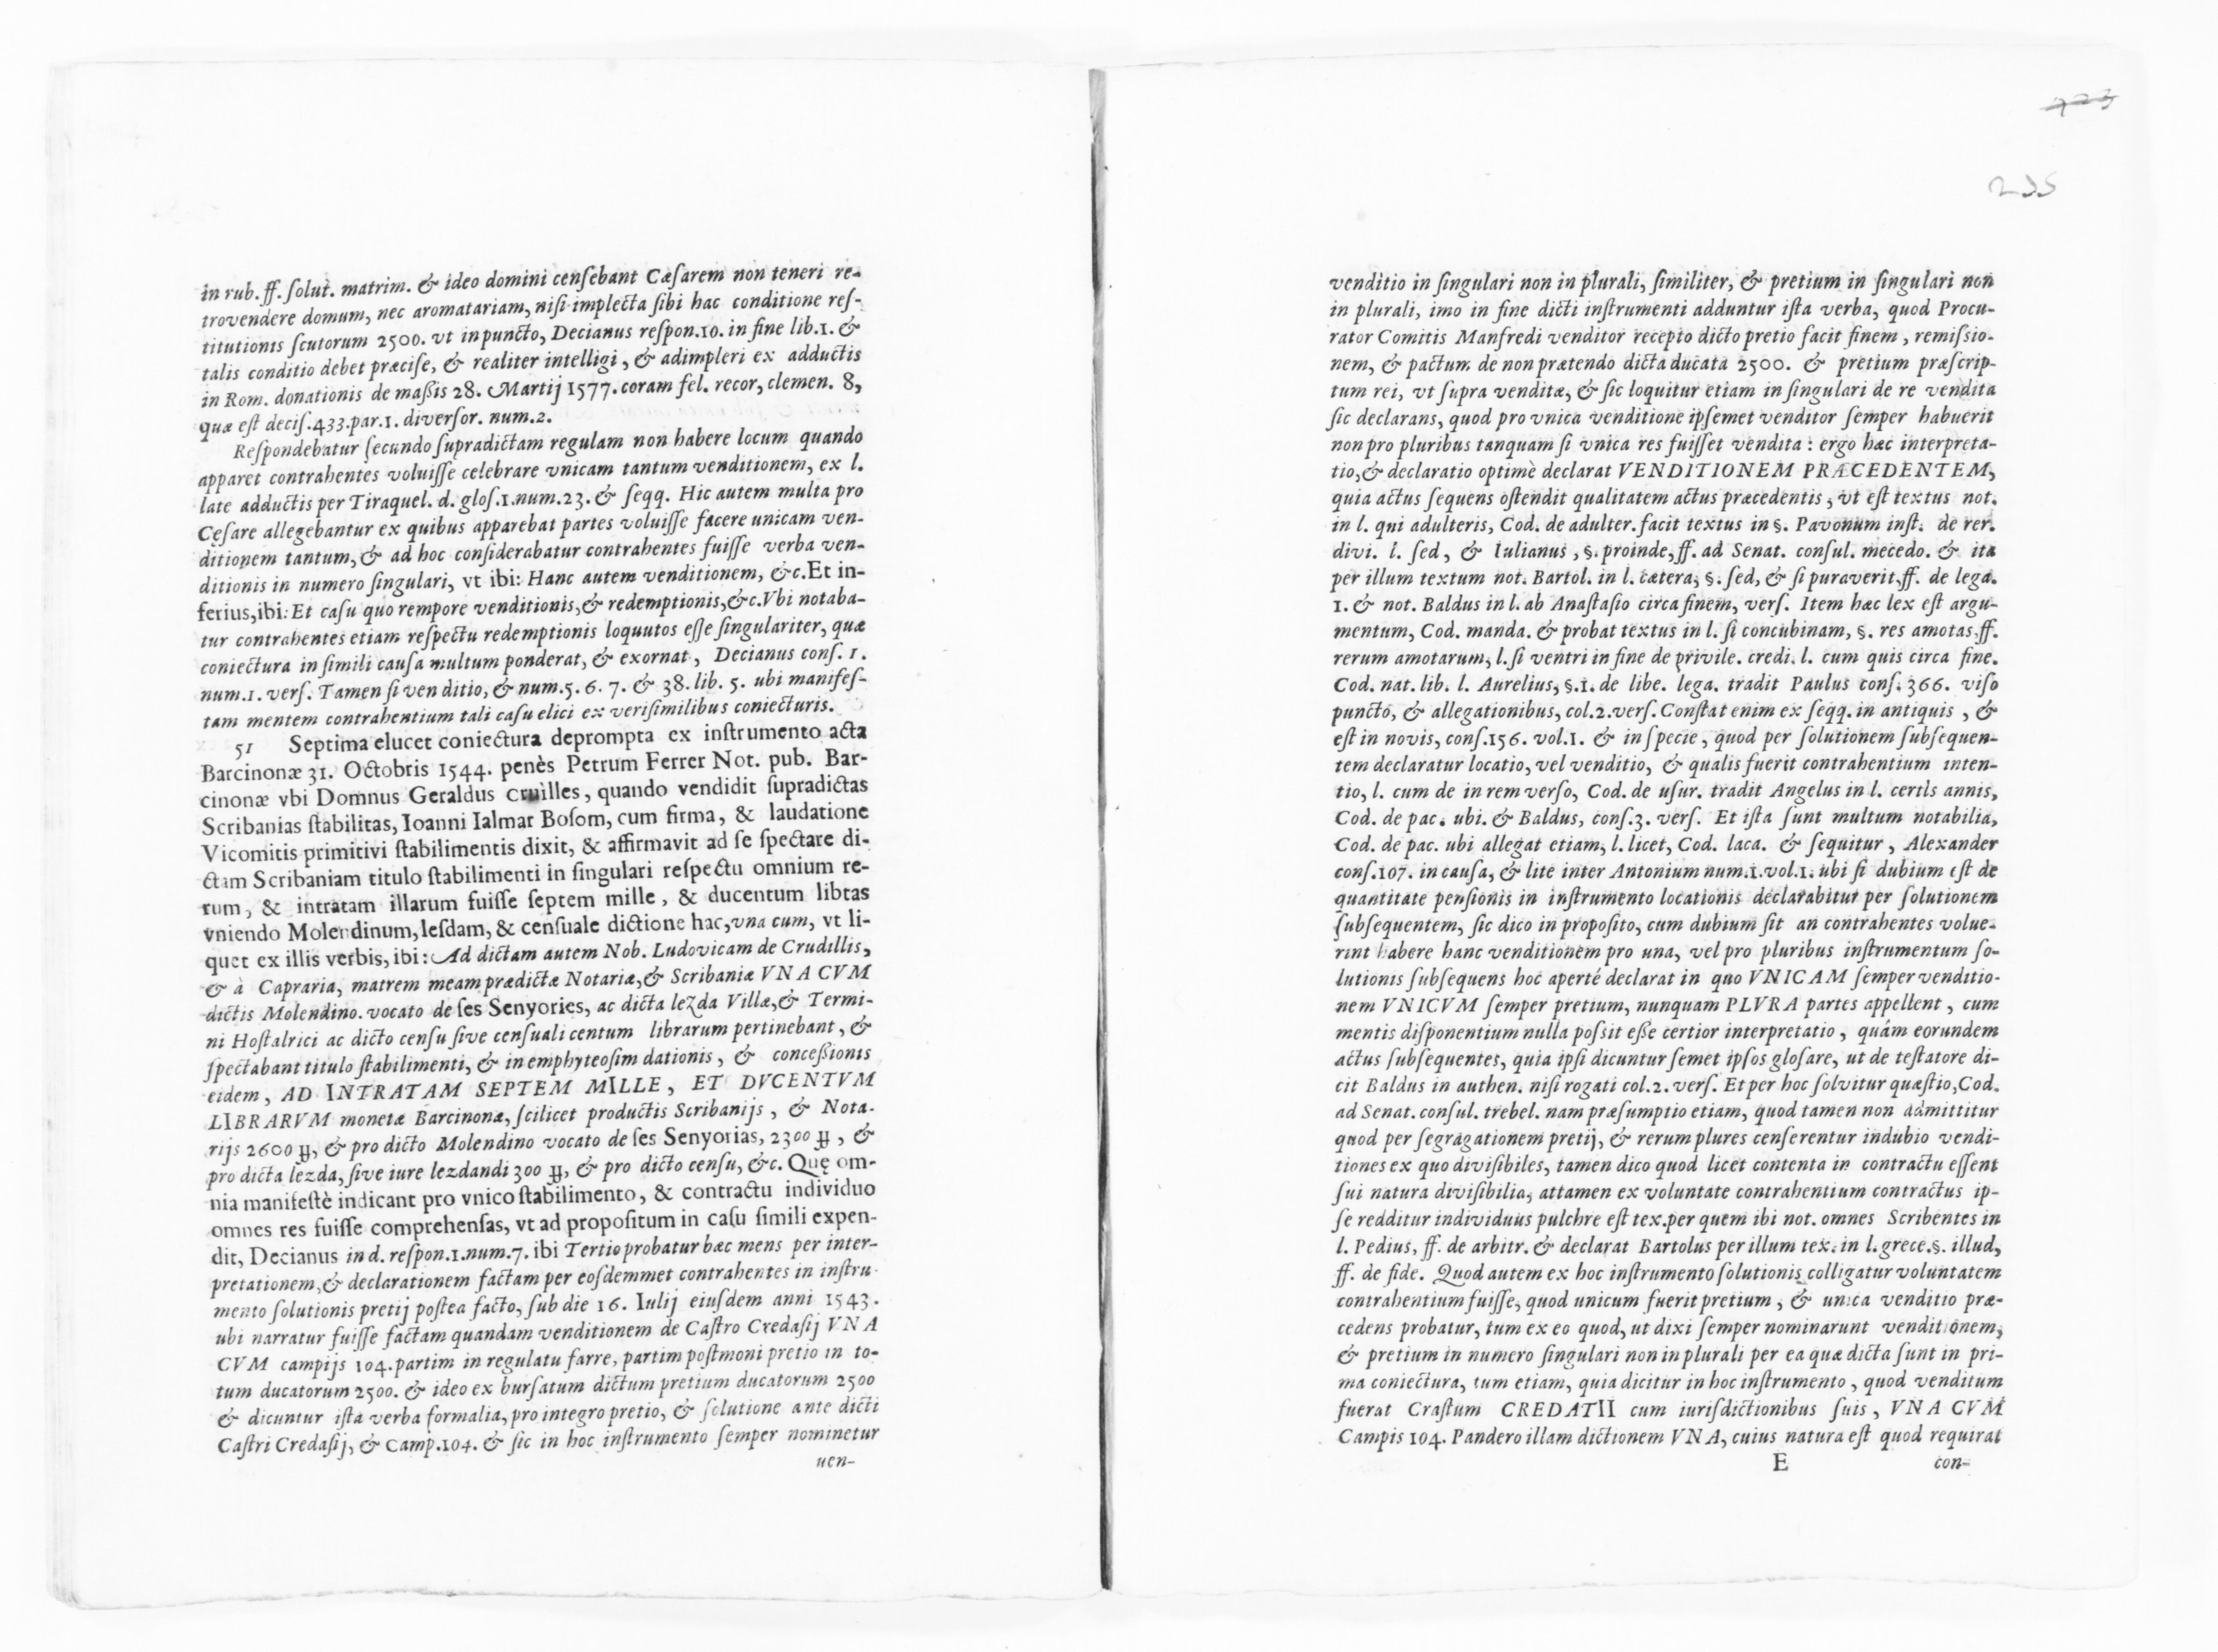 in rub. ff. ſolut. matrim. & ideo domini cenſebant Cæſarem non teneri re-
trovendere domum, nec aromatariam, niſi implecta ſibi hac conditione reſ-
titutionis ſcutorum 2500. vt in puncto, Decianus reſpon.10. in fine lib.1. &
talis conditio debet præciſe, & realiter intelligi, & adimpleri ex adductis
in Rom. donationis de maßis 28. Martij 1577. coram fel. recor, clemen. 8,
quæ eſt deciſ.433.par.1. diverſor. num.2.
Reſpondebatur ſecundo ſupradictam regulam non habere locum quando
apparet contrahentes voluiſſe celebrare vnicam tantum venditionem, ex l.
late adductis per Tiraquel. d. gloſ.1.num.23. & ſeqq. Hic autem multa pro
Ceſare allegebantur ex quibus apparebat partes voluiſſe facere unicam ven-
ditionem tantum, & ad hoc conſiderabatur contrahentes fuiſſe verba ven-
ditionis in numero ſingulari, vt ibi: Hanc autem venditionem, &c. Et in-
ferius, ibi: Et caſu quo rempore venditionis, & redemptionis, &c. Vbi notaba-
tur contrahentes etiam reſpectu redemptionis loquutos eſſe ſingulariter, quæ
coniectura in ſimili cauſa multum ponderat, & exornat, Decianus conſ. 1.
num.1. verſ. Tamen ſi ven ditio, & num.5. 6. 7. & 38. lib. 5. ubi manifeſ-
tam mentem contrahentium tali caſu elici ex veriſimilibus coniecturis.
51 Septima elucet coniectura deprompta ex inſtrumento acta
Barcinonæ 31. Octobris 1544. penès Petrum Ferrer Not. pub. Bar-
cinonæ vbi Domnus Geraldus Cruilles, quando vendidit ſupradictas
Scribanias ſtabilitas, Ioanni Ialmar Boſom, cum firma, & laudatione
Vicomitis primitivi ſtabilimentis dixit, & affirmavit ad ſe ſpectare di-
ctam Scribaniam titulo ſtabilimenti in ſingulari reſpectu omnium re-
rum, & intratam illarum fuiſſe ſeptem mille, & ducentum libtas
vniendo Molendinum, leſdam, & cenſuale dictione hac, vna cum, vt li-
quet ex illis verbis, ibi: Ad dictam autem Nob. Ludovicam de Crudillis,
& à Capraria, matrem meam prædictæ Notariæ, & Scribaniæ VNA CVM
dictis Molendino. vocato de ſes Senyories, ac dicta lezda Villæ, & Termi-
ni Hoſtalrici ac dicto cenſu ſive cenſuali centum librarum pertinebant, &
ſpectabant titulo ſtabilimenti, & in emphyteoſim dationis, & conceßionis
eidem, AD INTRATAM SEPTEM MILLE, ET DVCENTVM
LIBRARVM monetæ Barcinonæ, ſcilicet productis Scribanijs, & Nota-
rijs 2600 ℔, & pro dicto Molendino vocato de ſes Senyorias, 2300 ℔, &
pro dicta lezda, ſive iure lezdandi 300 ℔, & pro dicto cenſu, &c. Quę om-
nia manifeſtè indicant pro vnico ſtabilimento, & contractu individuo
omnes res fuiſſe comprehenſas, vt ad propoſitum in caſu ſimili expen-
dit, Decianus in d. reſpon.1.num.7. ibi Tertio probatur hæc mens per inter-
pretationem, & declarationem factam per eoſdemmet contrahentes in inſtru-
mento ſolutionis pretij poſtea facto, ſub die 16. Iulij eiuſdem anni 1543.
ubi narratur fuiſſe factam quandam venditionem de Caſtro Credaſij VNA
CVM campijs 104. partim in regulatu farre, partim poſtmoni pretio in to-
tum ducatorum 2500. & ideo ex burſatum dictum pretium ducatorum 2500
& dicuntur iſta verba formalia, pro integro pretio, & ſolutione ante dicti
Caſtri Credaſij, & Camp.104. & ſic in hoc inſtrumento ſemper nominetur
uen-
235
venditio in ſingulari non in plurali, ſimiliter, & pretium in ſingulari non
in plurali, imo in fine dicti inſtrumenti adduntur iſta verba, quod Procu-
rator Comitis Manfredi venditor recepto dicto pretio facit finem, remiſsio-
nem, & pactum de non prætendo dicta ducata 2500. & pretium præſcrip-
tum rei, vt ſupra venditæ, & ſic loquitur etiam in ſingulari de re vendita
ſic declarans, quod pro vnica venditione ipſemet venditor ſemper habuerit
non pro pluribus tanquam ſi vnica res fuiſſet vendita : ergo hæc interpreta-
tio, & declaratio optimè declarat VENDITIONEM PRÆCEDENTEM,
quia actus ſequens oſtendit qualitatem actus præcedentis, vt eſt textus not.
in l. qni adulteris, Cod. de adulter. facit textus in §. Pavonum inſt. de rer.
divi. l. ſed, & Iulianus, §. proinde, ff. ad Senat. conſul. mecedo. & ita
per illum textum not. Bartol. in l. cætera, §. ſed, & ſi puraverit, ff. de lega.
1. & not. Baldus in l. ab Anaſtaſio circa finem, verſ. Item hæc lex eſt argu-
mentum, Cod. manda. & probat textus in l. ſi concubinam, §. res amotas, ff.
rerum amotarum, l. ſi ventri in fine de privile. credi. l. cum quis circa fine.
Cod. nat. lib. l. Aurelius, §.1. de libe. lega. tradit Paulus conſ. 366. viſo
puncto, & allegationibus, col.2. verſ. Conſtat enim ex ſeqq. in antiquis, &
eſt in novis, conſ.156. vol.1. & in ſpecie, quod per ſolutionem ſubſequen-
tem declaratur locatio, vel venditio, & qualis fuerit contrahentium inten-
tio, l. cum de in rem verſo, Cod. de uſur. tradit Angelus in l. certis annis,
Cod. de pac. ubi. & Baldus, conſ.3. verſ. Et iſta ſunt multum notabilia,
Cod. de pac. ubi allegat etiam, l. licet, Cod. laca. & ſequitur, Alexander
conſ.107. in cauſa, & lite inter Antonium num.1.vol.1. ubi ſi dubium eſt de
quantitate penſionis in inſtrumento locationis declarabitur per ſolutionem
ſubſequentem, ſic dico in propoſito, cum dubium ſit an contrahentes volue-
rint habere hanc venditionem pro una, vel pro pluribus inſtrumentum ſo-
lutionis ſubſequens hoc aperté declarat in quo VNICAM ſemper venditio-
nem VNICVM ſemper pretium, nunquam PLVRA partes appellent, cum
mentis diſponentium nulla poſsit eße certior interpretatio, quám eorundem
actus ſubſequentes, quia ipſi dicuntur ſemet ipſos gloſare, ut de teſtatore di-
cit Baldus in authen. niſi rogati col.2. verſ. Et per hoc ſolvitur quæſtio, Cod.
ad Senat. conſul. trebel. nam præſumptio etiam, quod tamen non admittitur
quod per ſegragationem pretij, & rerum plures cenſerentur indubio vendi-
tiones ex quo diviſibiles, tamen dico quod licet contenta in contractu eſſent
ſui natura diviſibilia, attamen ex voluntate contrahentium contractus ip-
ſe redditur individuus pulchre eſt tex. per quem ibi not. omnes Scribentes in
l. Pedius, ff. de arbitr. & declarat Bartolus per illum tex. in l. grece. §. illud,
ff. de fide. Quod autem ex hoc inſtrumento ſolutionis colligatur voluntatem
contrahentium fuiſſe, quod unicum fuerit pretium, & unica venditio præ-
cedens probatur, tum ex eo quod, ut dixi ſemper nominarunt venditionem,
& pretium in numero ſingulari non in plurali per ea quæ dicta ſunt in pri-
ma coniectura, tum etiam, quia dicitur in hoc inſtrumento, quod venditum
fuerat Craſtum CREDATII cum iuriſdictionibus ſuis, VNA CVM
Campis 104. Pandero illam dictionem VNA, cuius natura eſt quod requirat
E con-